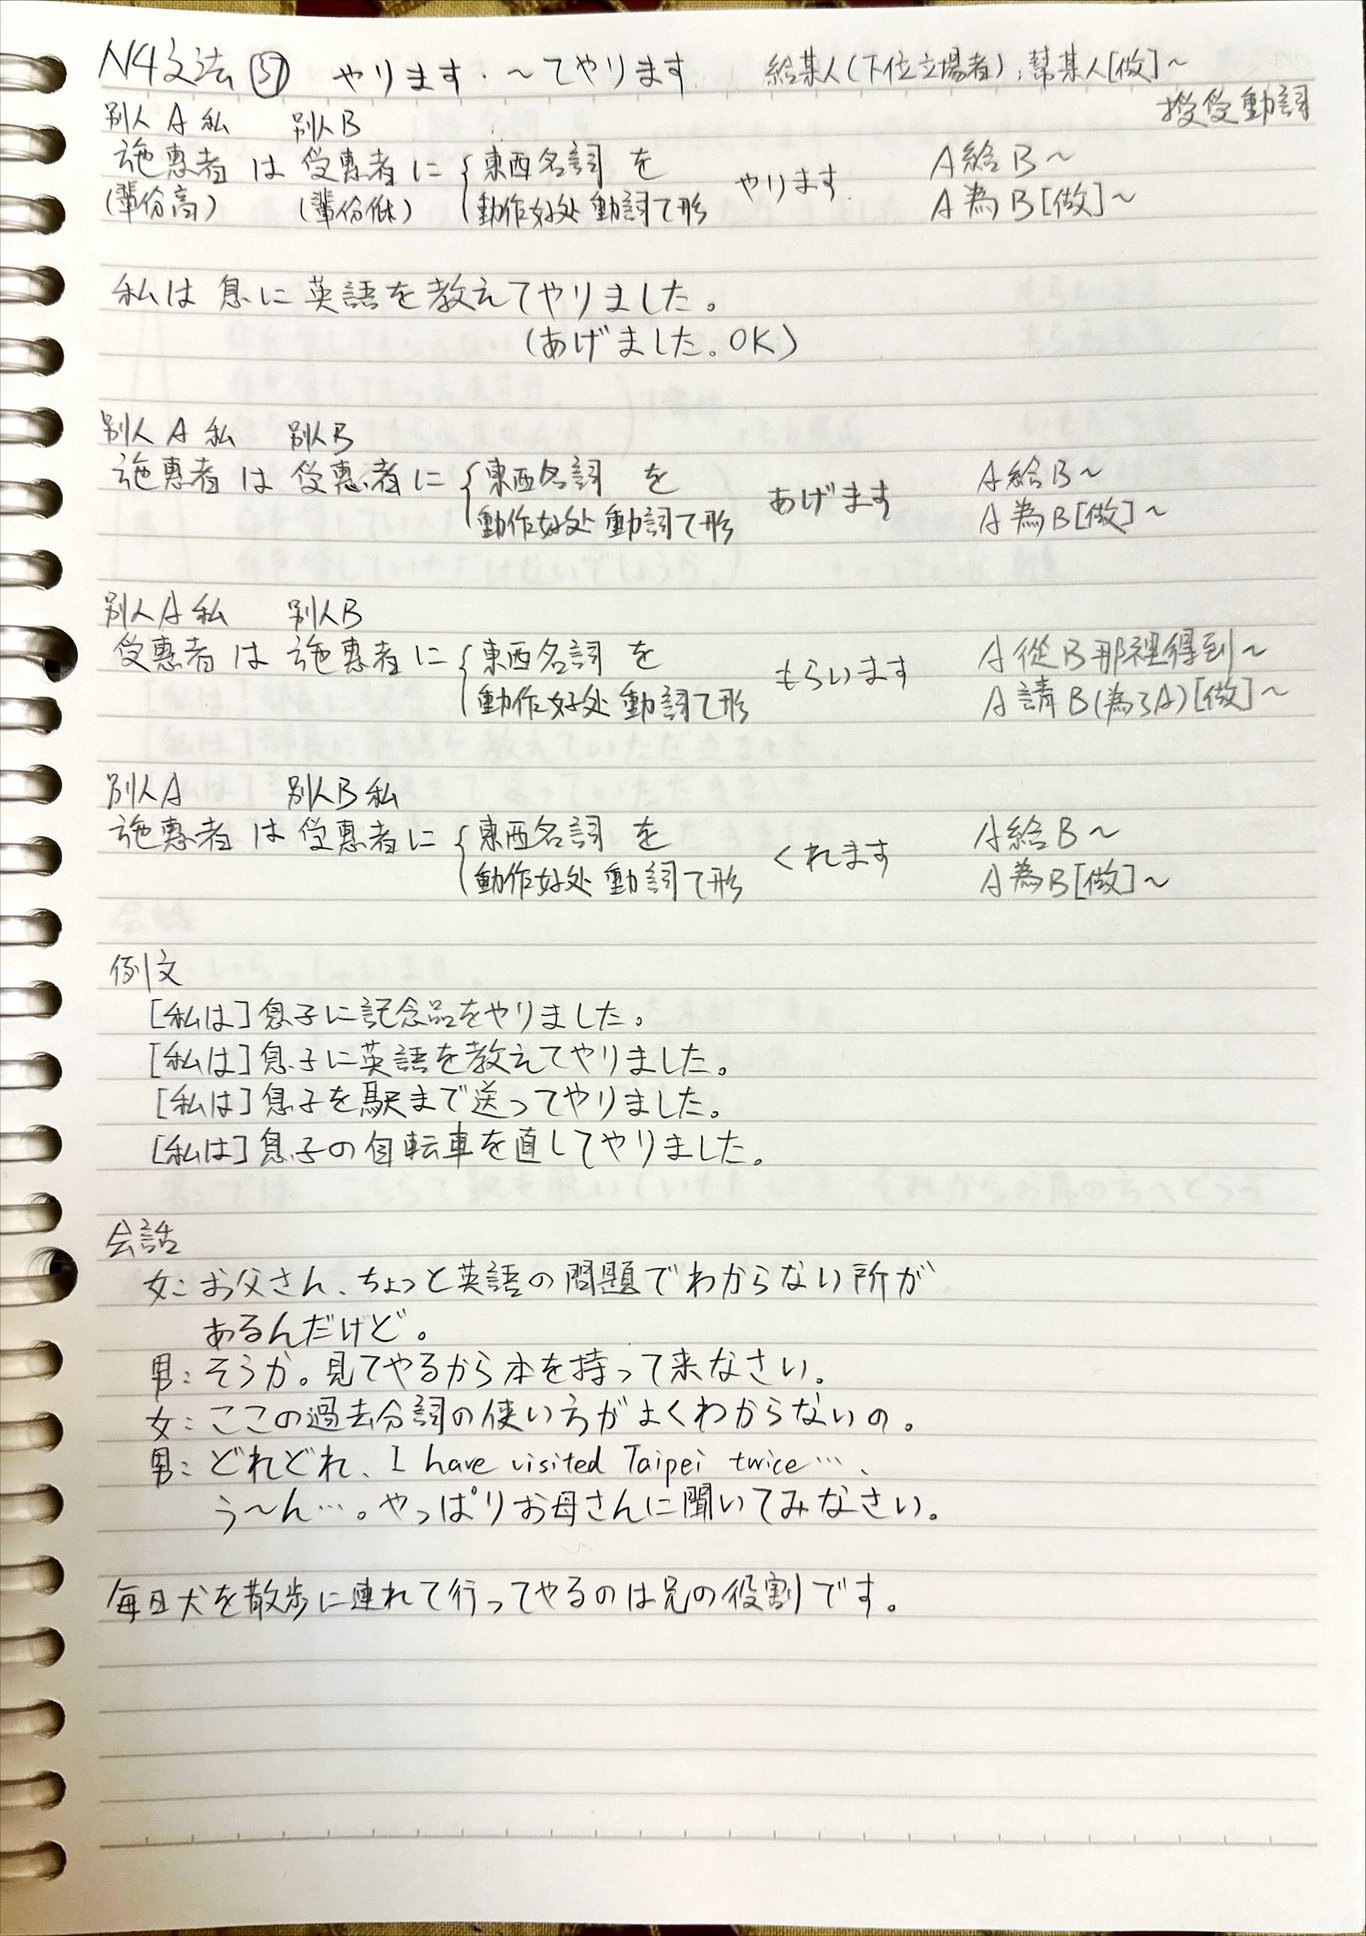 N4文法 57 やります・〜てやります 給某人(下位立場者),幫某人[做]〜
授受動詞
別人A 私 別人B
施惠者 は 受惠者 に { 東西名詞 を やります A給B〜
(輩份高) (輩份低) 動作好处 動詞て形 A為B[做]〜
私は 息に 英語を教えてやりました。
(あげました。OK)
別人A 私 別人B
施惠者 は 受惠者 に { 東西名詞 を あげます A給B〜
動作好处 動詞て形 A為B[做]〜
別人A 私 別人B
受惠者 は 施惠者 に { 東西名詞 を もらいます A從B那裡得到〜
動作好处 動詞て形 A請B(為了A)[做]〜
別人A 別人B 私
施惠者 は 受惠者 に { 東西名詞 を くれます A給B〜
動作好处 動詞て形 A為B[做]〜
例文
[私は]息子に記念品をやりました。
[私は]息子に英語を教えてやりました。
[私は]息子を駅まで送ってやりました。
[私は]息子の自転車を直してやりました。
会話
女:お父さん、ちょっと英語の問題でわからない所が
あるんだけど。
男:そうか。見てやるから本を持って来なさい。
女:ここの過去分詞の使い方がよくわからないの。
男:どれどれ、I have visited Taipei twice…、
う〜ん…。やっぱりお母さんに聞いてみなさい。
毎日犬を散歩に連れて行ってやるのは兄の役割です。